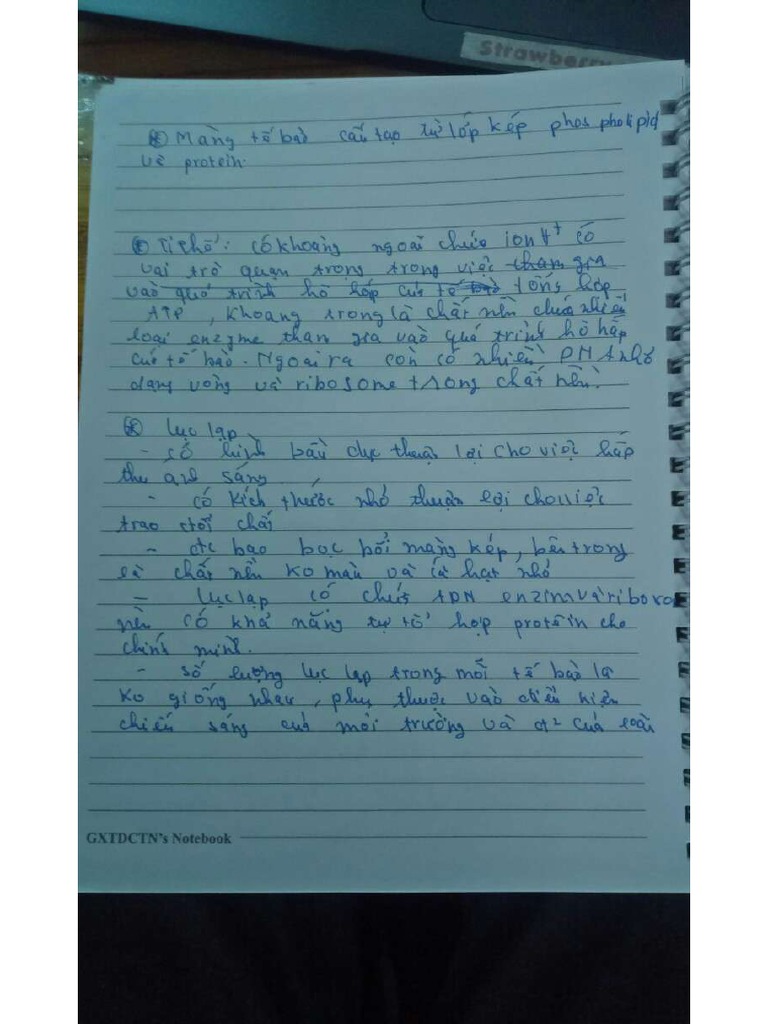 Strawberry
Màng tế bào cấu tạo từ lớp kép phospholipid
và protein.
Ti thể: có khoảng ngoài chứa ion H+ có
vai trò quan trọng trong việc tham gia
vào quá trình hô hấp của tế bào tổng hợp
ATP, khoang trong là chất nền chứa nhiều
loại enzyme tham gia vào quá trình hô hấp
của tế bào. Ngoài ra còn có nhiều DNA nhỏ
dạng vòng và ribosome trong chất nền.
Lục lạp
- có hình bầu dục thuận lợi cho việc hấp
thu ánh sáng
- có kích thước nhỏ thuận lợi cho việc
trao đổi chất
- đc bao bọc bởi màng kép, bên trong
là chất nền ko màu và các hạt nhỏ
- Lục lạp có chứa ADN enzim và riboxo
nên có khả năng tự tổ hợp protein cho
chính mình.
- số lượng lục lạp trong mỗi tế bào là
ko giống nhau, phụ thuộc vào điều kiện
chiếu sáng của môi trường và của loài
GXTDCTN's Notebook